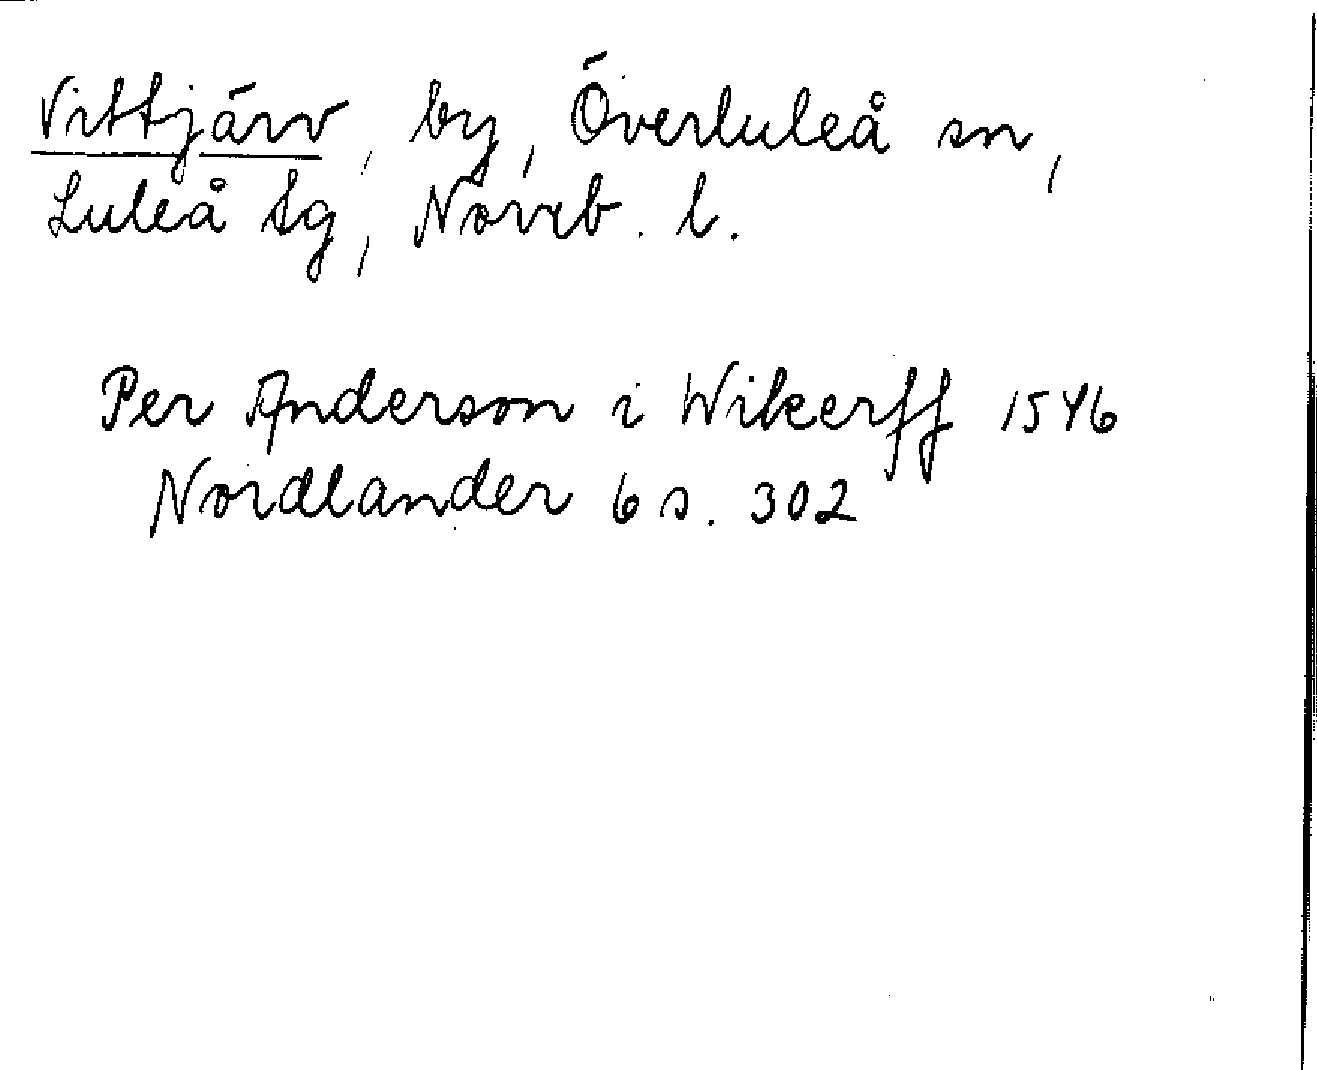 Vittjärv, by, Överluleå sn,
Luleå tg, Norrb. l.
Per Anderson i Wikerff 1546
Nordlander 6 s. 302